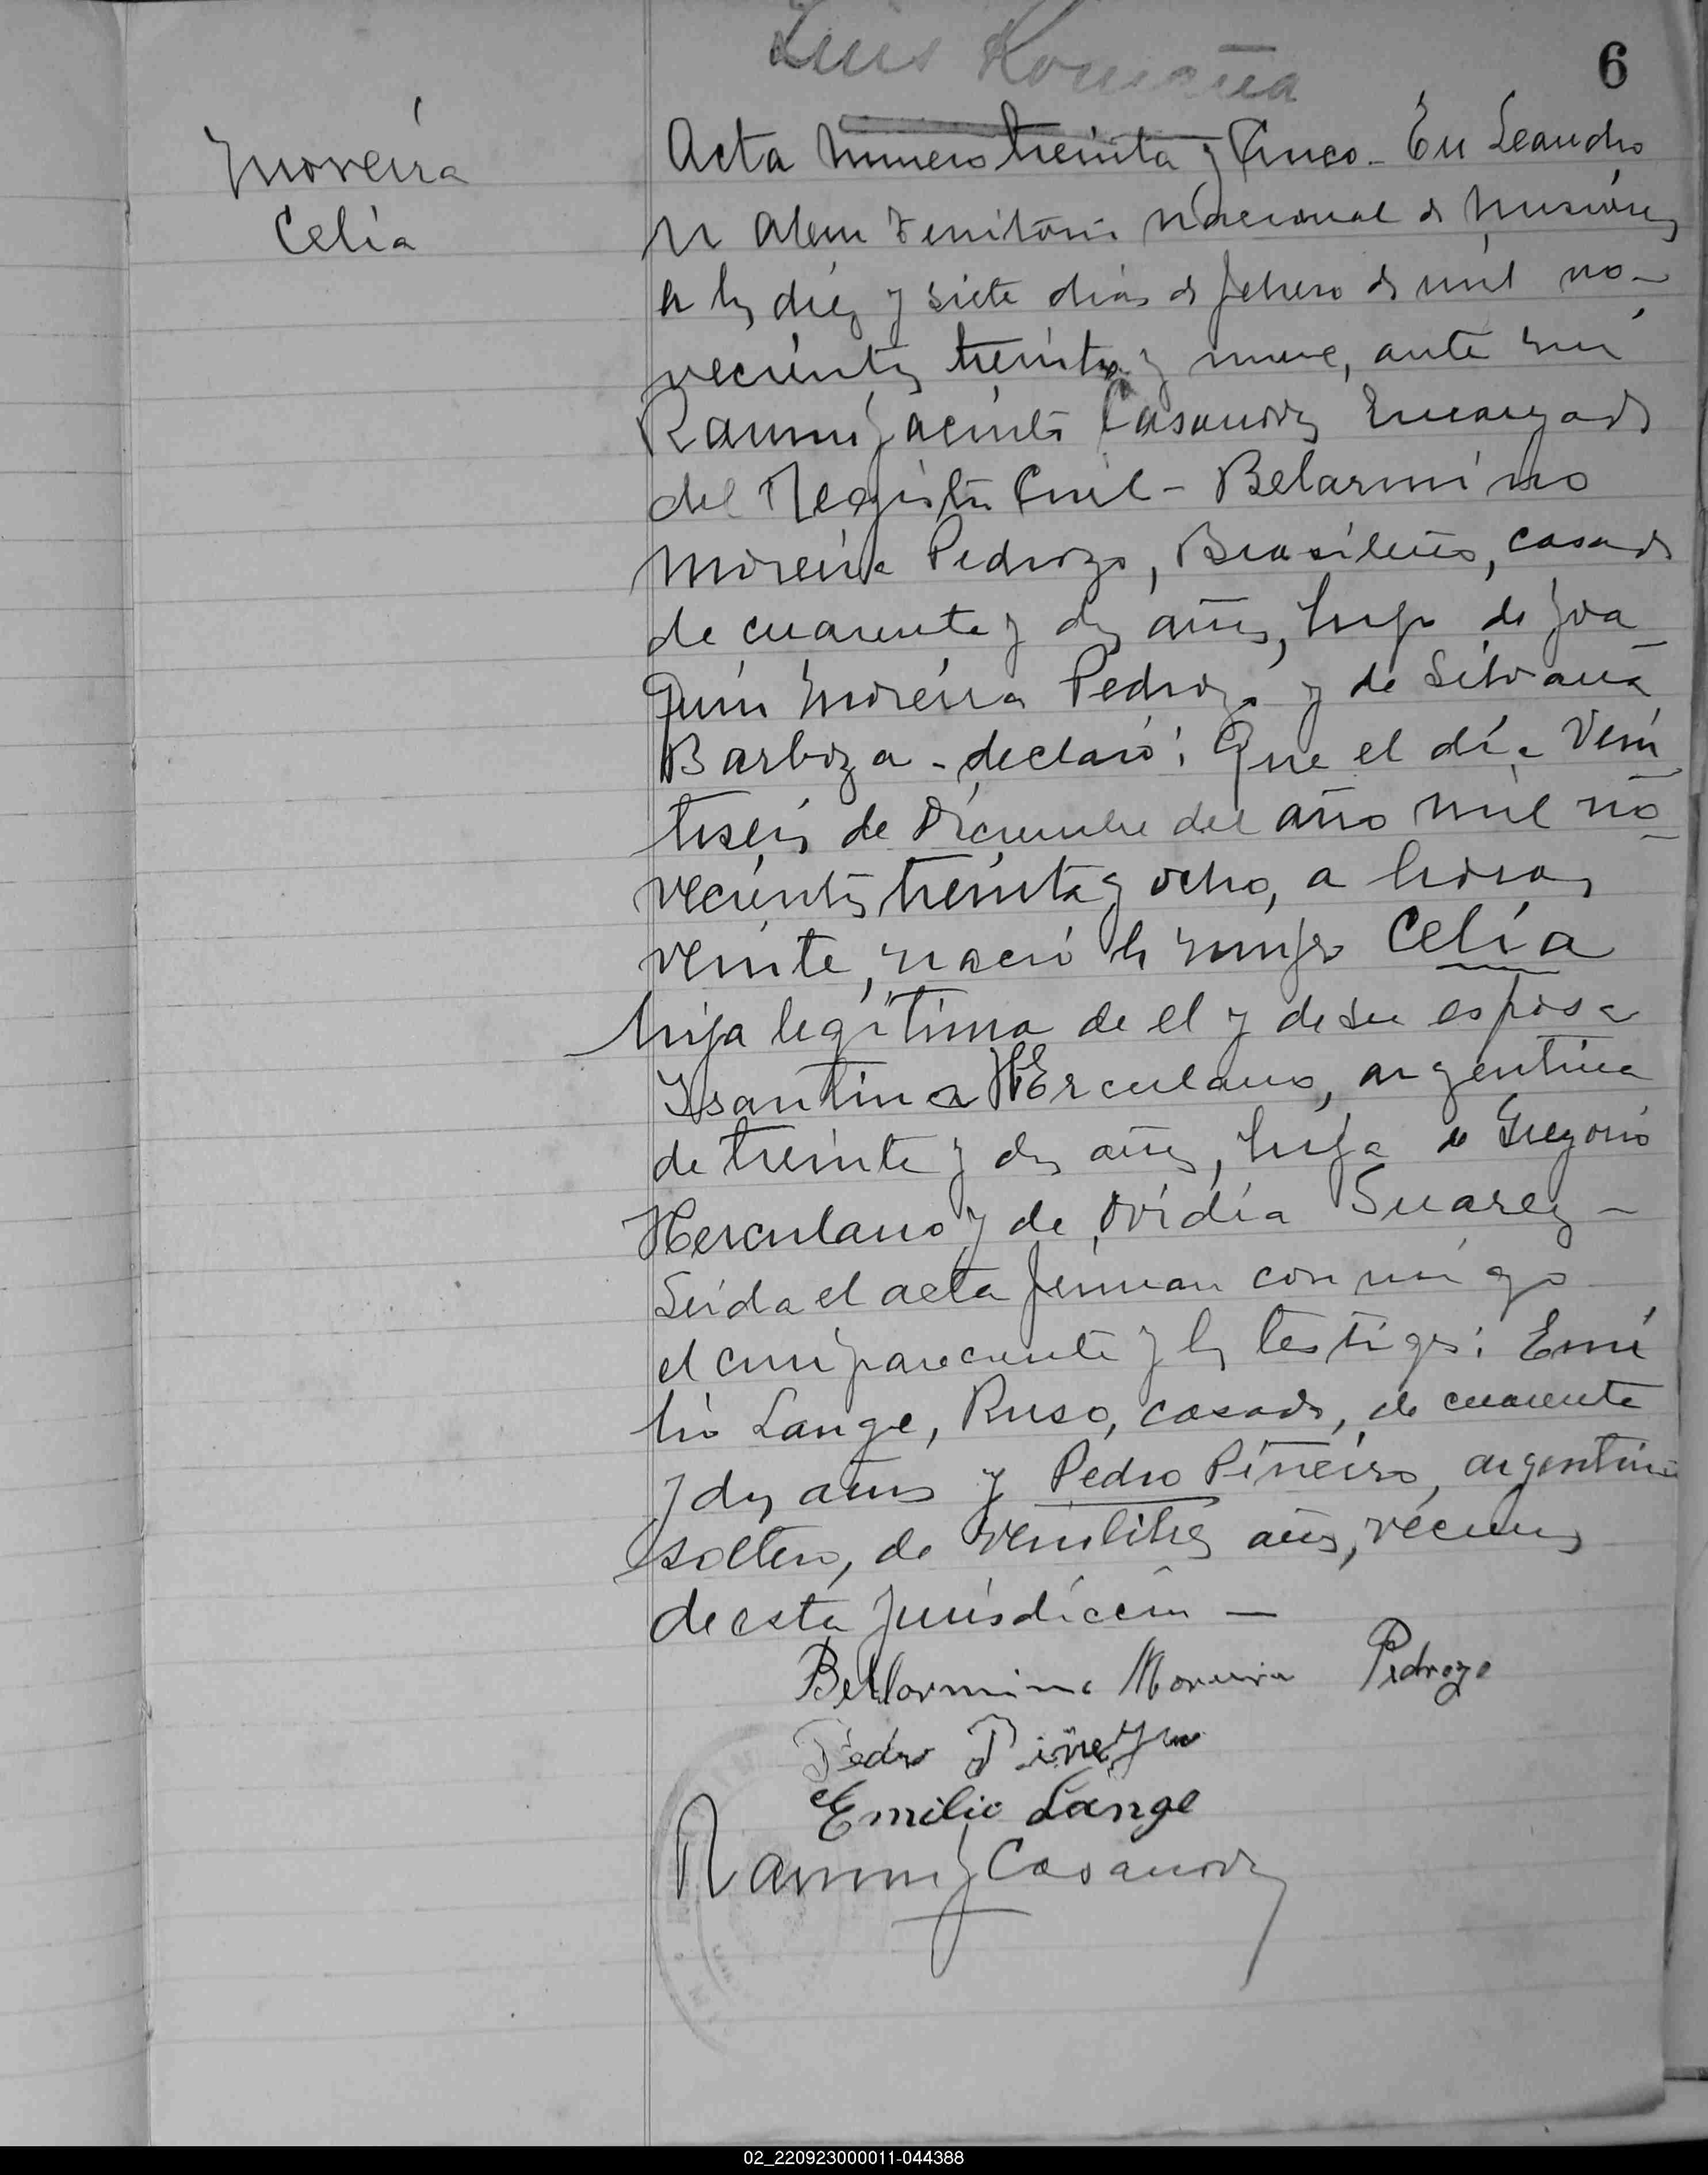 Luis Romaña
6
Moreira
Celia
Acta número treinta y Cinco.- En Leandro
N Alem Territorio Nacional de Misiones
a los diez y siete dias de febrero de mil no-
vecientos treinta y nueve, ante mi
Ramon Jacinto Casanova Encargado
del Registro Civil - Belarmino
Moreira Pedrozo, Brasileño, casado
de cuarenta y dos años, hijo de Joa
quin Moreira Pedrozo y de Silvana
Barboza - declaró: Que el día Vein
tiseis de Diciembre del año mil no
vecientos treinta y ocho, a horas
veinte, nació la mujer Celia
hija legítima de el y de su esposa
Isantina HErculano, argentina
de treinta y dos años, hija de Gregorio
Herculano y de Ovidia Suarez -
Leida el acta firman conmigo
el compareciente y los testigos: Emi
lio Lange, Ruso, casado, de cuarenta
y dos años y Pedro Piñeiro, argentino
soltero, de veintitres años, vecinos
de esta jurisdicción -
Bellarmino Moreira Pedrozo
Pedro Piñeyro
Emilio Lange
Ramon J Casanova
02_220923000011-044388